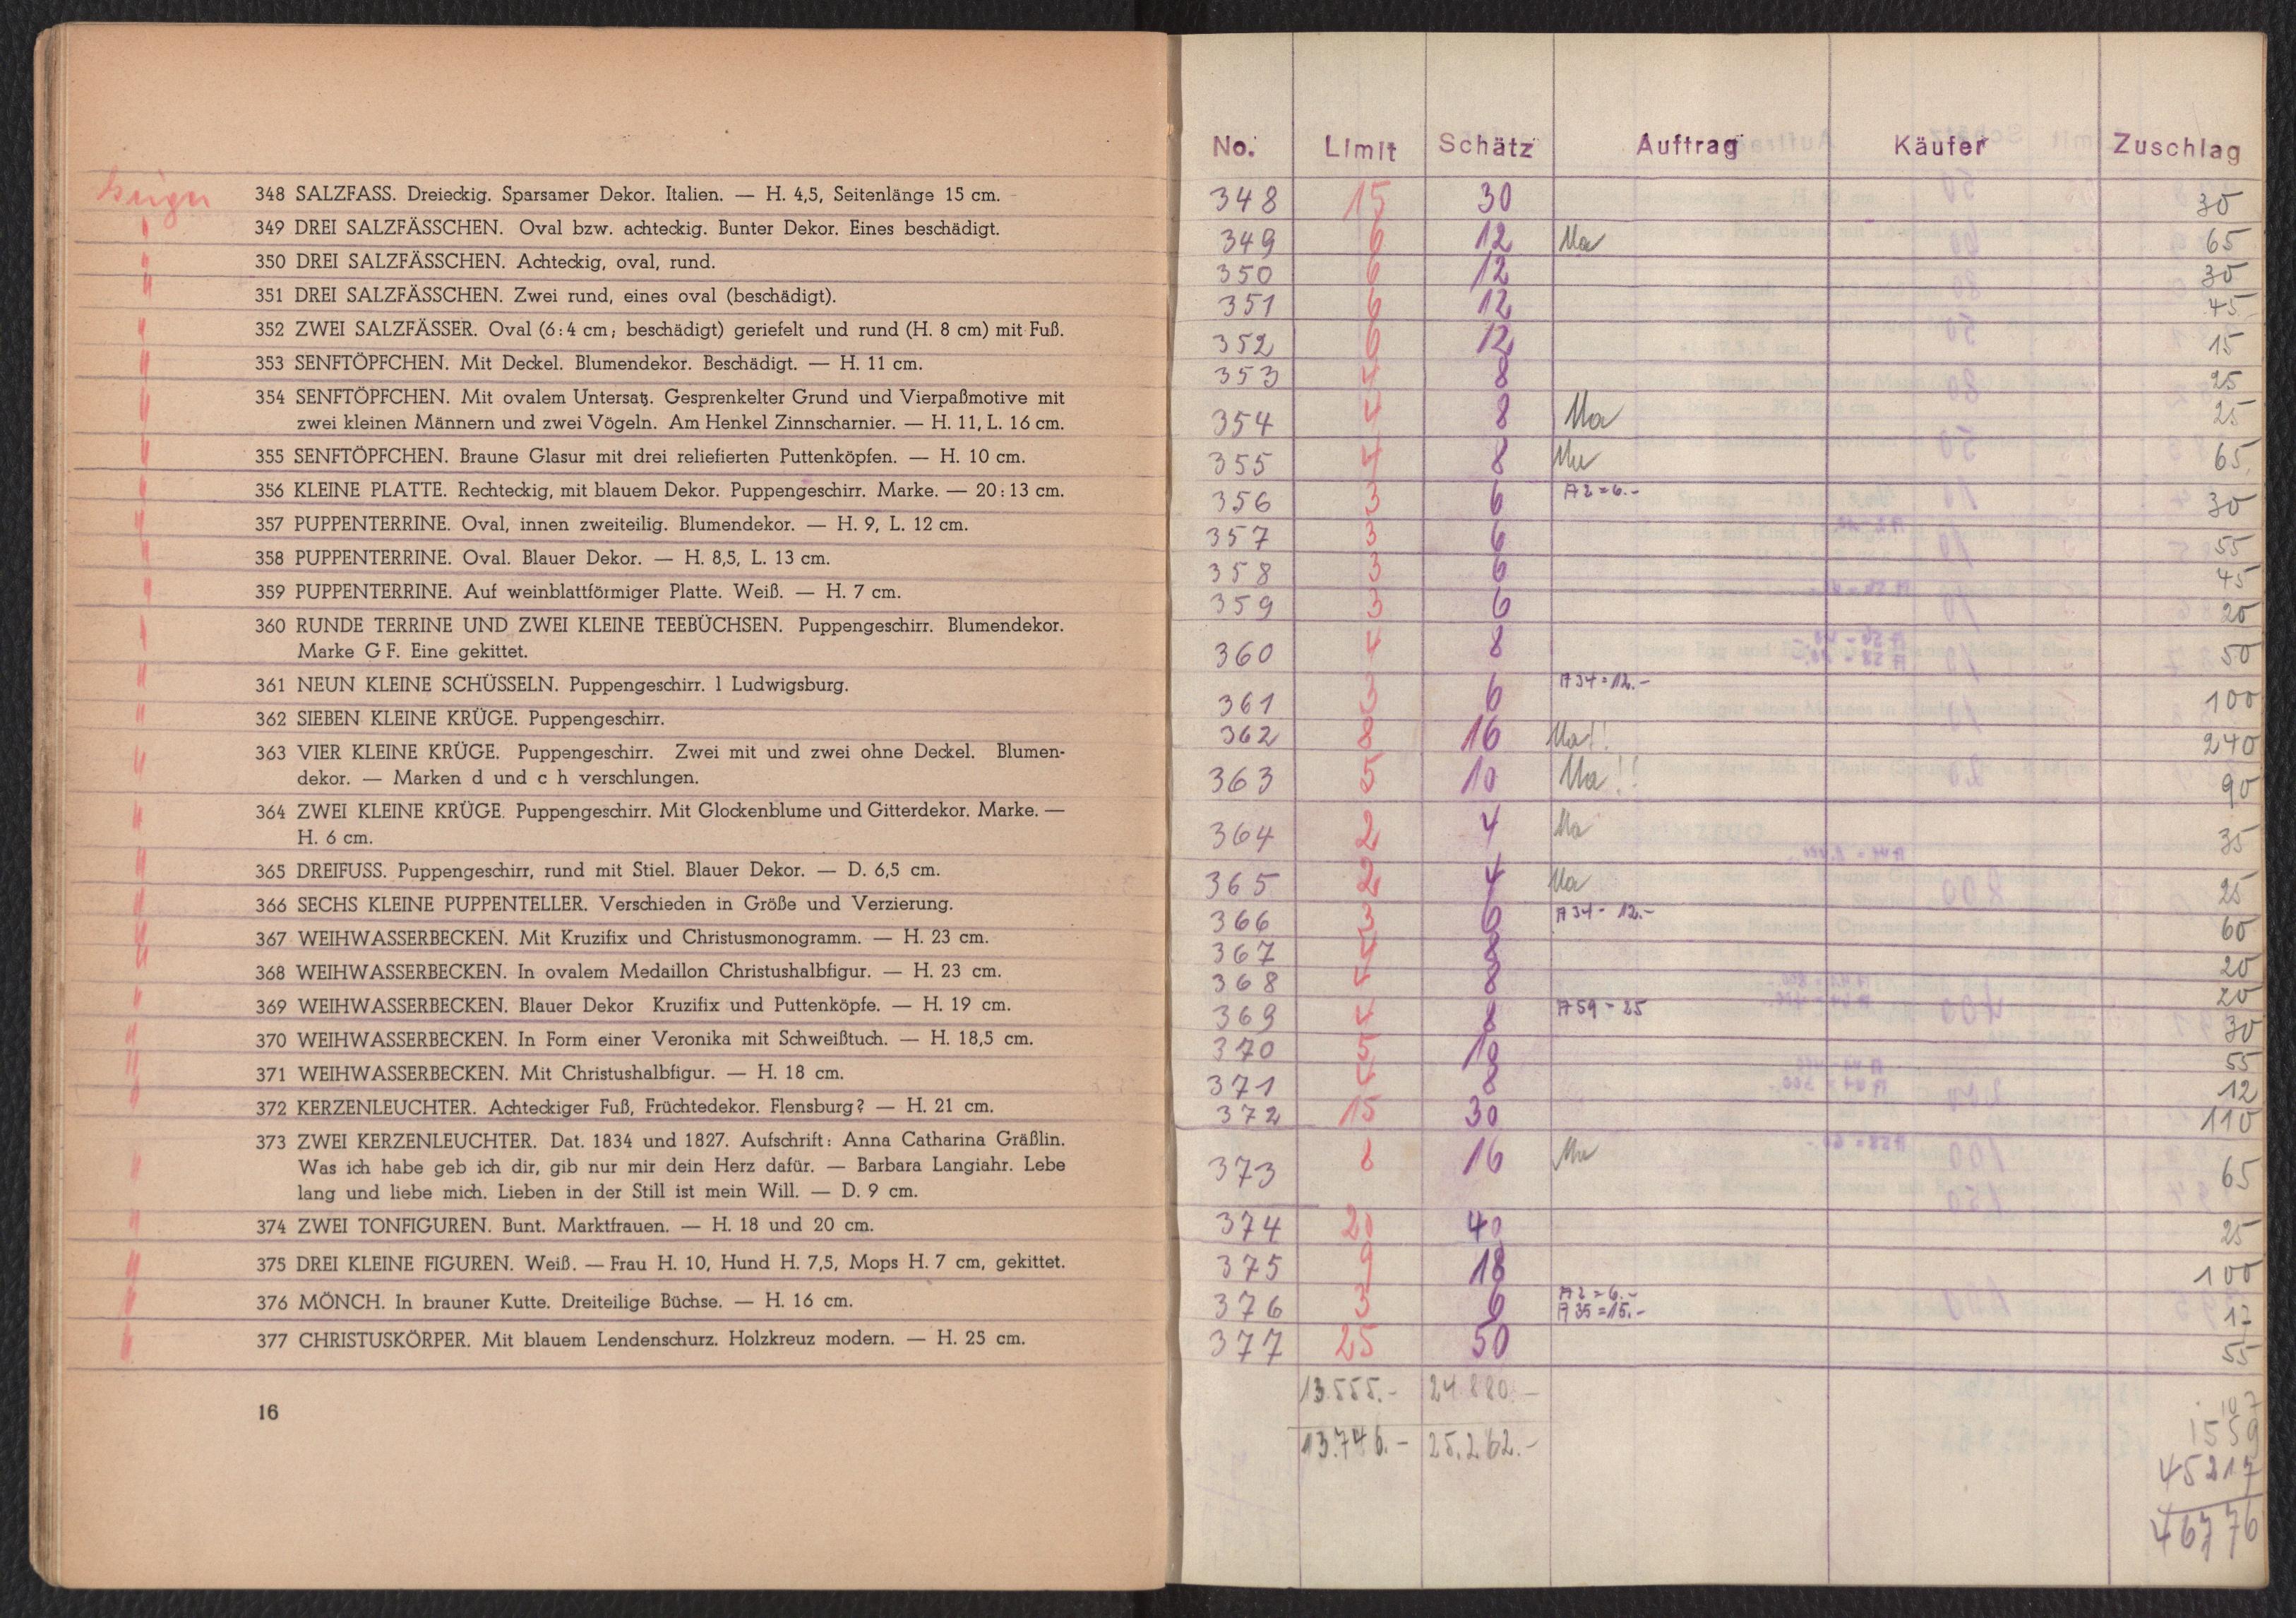 348 SALZFASS. Dreieckig. Sparsamer Dekor. Italien. — H. 4,5, Seitenlänge 15 cm.
349 DREI SALZFÄSSCHEN. Oval bzw. achteckig. Bunter Dekor. Eines beschädigt.
350 DREI SALZFÄSSCHEN. Achteckig, oval, rund.
351 DREI SALZFÄSSCHEN. Zwei rund, eines oval (beschädigt).
352 ZWEI SALZFÄSSER. Oval (6:4 cm; beschädigt) geriefelt und rund (H. 8 cm) mit Fuß.
353 SENFTÖPFCHEN. Mit Deckel. Blumendekor. Beschädigt. — H. 11 cm.
354 SENFTÖPFCHEN. Mit ovalem Untersatz. Gesprenkelter Grund und Vierpaßmotive mit
zwei kleinen Männern und zwei Vögeln. Am Henkel Zinnscharnier. — H. 11, L. 16 cm.
355 SENFTÖPFCHEN. Braune Glasur mit drei reliefierten Puttenköpfen. — H. 10 cm.
356 KLEINE PLATTE. Rechteckig, mit blauem Dekor. Puppengeschirr. Marke. — 20:13 cm.
357 PUPPENTERRINE. Oval, innen zweiteilig. Blumendekor. — H. 9, L. 12 cm.
358 PUPPENTERRINE. Oval. Blauer Dekor. — H. 8,5, L. 13 cm.
359 PUPPENTERRINE. Auf weinblattförmiger Platte. Weiß. — H. 7 cm.
360 RUNDE TERRINE UND ZWEI KLEINE TEEBÜCHSEN. Puppengeschirr. Blumendekor.
Marke G F. Eine gekittet.
361 NEUN KLEINE SCHÜSSELN. Puppengeschirr. 1 Ludwigsburg.
362 SIEBEN KLEINE KRÜGE. Puppengeschirr.
363 VIER KLEINE KRÜGE. Puppengeschirr. Zwei mit und zwei ohne Deckel. Blumen-
dekor. — Marken d und c h verschlungen.
364 ZWEI KLEINE KRÜGE. Puppengeschirr. Mit Glockenblume und Gitterdekor. Marke. —
H. 6 cm.
365 DREIFUSS. Puppengeschirr, rund mit Stiel. Blauer Dekor. — D. 6,5 cm.
366 SECHS KLEINE PUPPENTELLER. Verschieden in Größe und Verzierung.
367 WEIHWASSERBECKEN. Mit Kruzifix und Christusmonogramm. — H. 23 cm.
368 WEIHWASSERBECKEN. In ovalem Medaillon Christushalbfigur. — H. 23 cm.
369 WEIHWASSERBECKEN. Blauer Dekor Kruzifix und Puttenköpfe. — H. 19 cm.
370 WEIHWASSERBECKEN. In Form einer Veronika mit Schweißtuch. — H. 18,5 cm.
371 WEIHWASSERBECKEN. Mit Christushalbfigur. — H. 18 cm.
372 KERZENLEUCHTER. Achteckiger Fuß, Früchtedekor. Flensburg? — H. 21 cm.
373 ZWEI KERZENLEUCHTER. Dat. 1834 und 1827. Aufschrift: Anna Catharina Gräßlin.
Was ich habe geb ich dir, gib nur mir dein Herz dafür. — Barbara Langiahr. Lebe
lang und liebe mich. Lieben in der Still ist mein Will. — D. 9 cm.
374 ZWEI TONFIGUREN. Bunt. Marktfrauen. — H. 18 und 20 cm.
375 DREI KLEINE FIGUREN. Weiß. — Frau H. 10, Hund H. 7,5, Mops H. 7 cm, gekittet.
376 MÖNCH. In brauner Kutte. Dreiteilige Büchse. — H. 16 cm.
377 CHRISTUSKÖRPER. Mit blauem Lendenschurz. Holzkreuz modern. — H. 25 cm.
16
No. Limit Schätz Auftrag Käufer Zuschlag
348 15 30 30
349 6 12 Ma 65
350 6 12 30
351 6 12 45
352 6 12 15
353 4 8 25
354 4 8 Ma 25
355 4 8 Ma 65
356 3 6 A2=6.- 30
357 3 6 55
358 3 6 45
359 3 6 20
360 4 8 50
361 3 6 A34=12.- 100
362 8 16 Ma! 240
363 5 10 Ma!! 90
364 2 4 Ma 35
365 2 4 Ma 25
366 3 6 A34- 12.- 60
367 4 8 20
368 4 8 20
369 4 8 A59=25 30
370 5 10 55
371 4 8 12
372 15 30 110
373 8 16 Ma 65
374 20 40 25
375 9 18 100
376 3 6 A2=6.- A35=15.- 17
377 25 50 55
13.555.- 24.880.-
13.746.- 25.262.-
107
1559
45217
46776